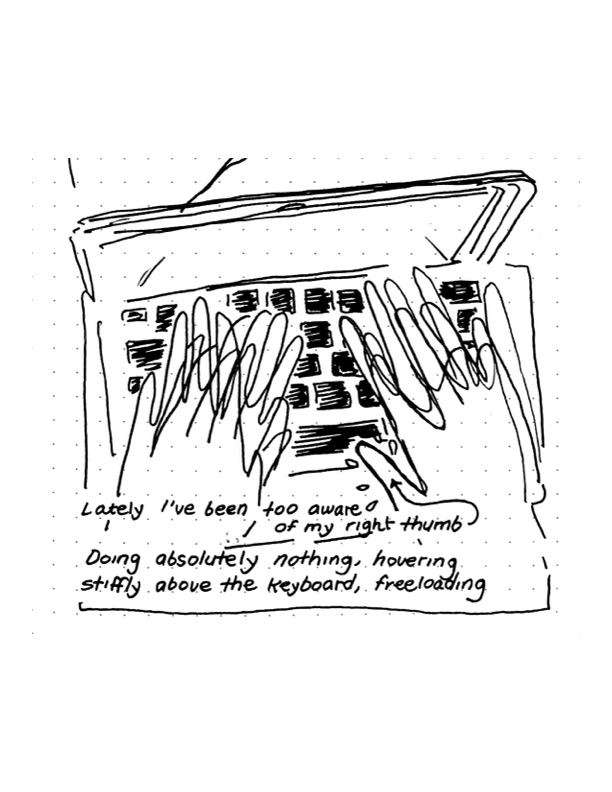 Lately I've been too aware
of my right thumb
Doing absolutely nothing, hovering
stiffly above the keyboard, freeloading